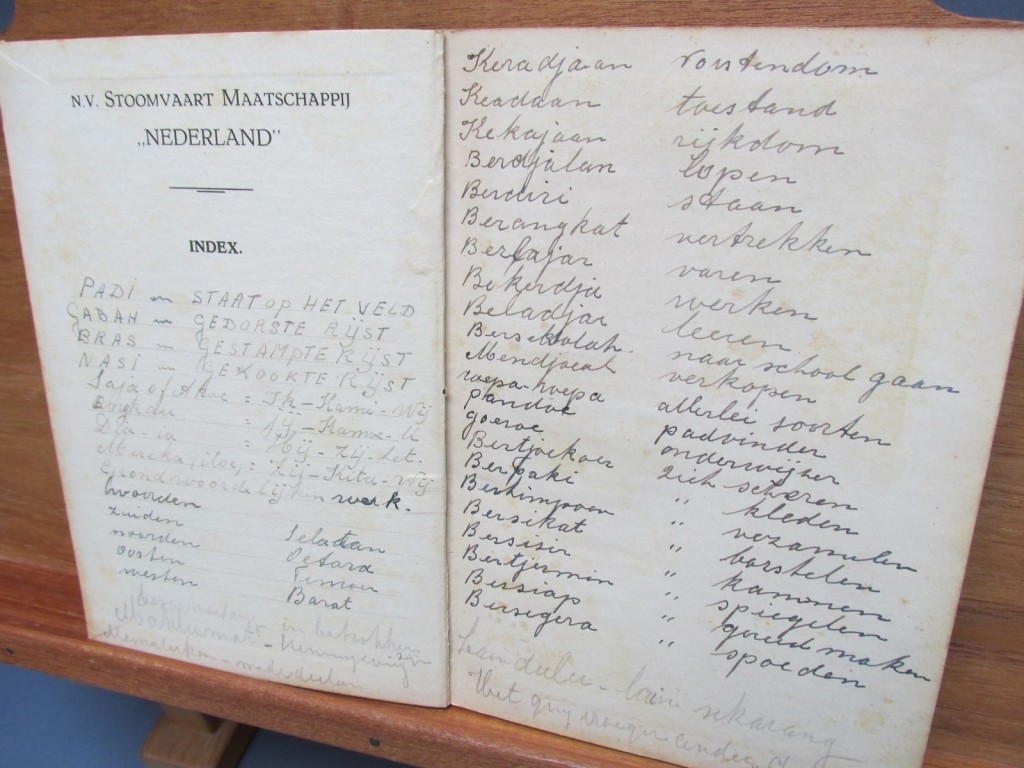 N.V. STOOMVAART MAATSCHAPPIJ
„NEDERLAND"
INDEX.
PADI = STAAT OP HET VELD
GABAH = GEDORSTE RIJST
BRAS = GESTAMPTE RIJST
NASI = GEKOOKTE RIJST
Saja of Akoe = Ik - Kami - Wij
Engkau = Jij - Kamoe - U
Dia - ia = Hij - Zij - het.
Mereka = Zij - Kita - Wij
Grondwoordelijken werk.
woorden
zuiden Selatan
noorden Oetara
oosten Timoer
westen Barat
in betrekken
Maklumat - Kennisgeving
Memalukan - mededeelen
Keradjaan vorstendom
Keadaan toestand
Kekajaan rijkdom
Berdjalan lopen
Berdiri staan
Berangkat vertrekken
Berlajar varen
Bekerdja werken
Beladjar leeren
Bersekolah. naar school gaan
Mendjoeal verkopen
roepa-roepa allerlei soorten
pandoe padvinder
goeroe onderwijzer
Bertjoekoer zich scheren
Berpaki " kleden
Berhimpoen " verzamelen
Bersikat " borstelen
Bersisir " kammen
Bertjermin " spiegelen
Bersiap " gereed maken
Bersegera " spoeden
Lain dulu - lain sekarang
Het ging vroeger anders